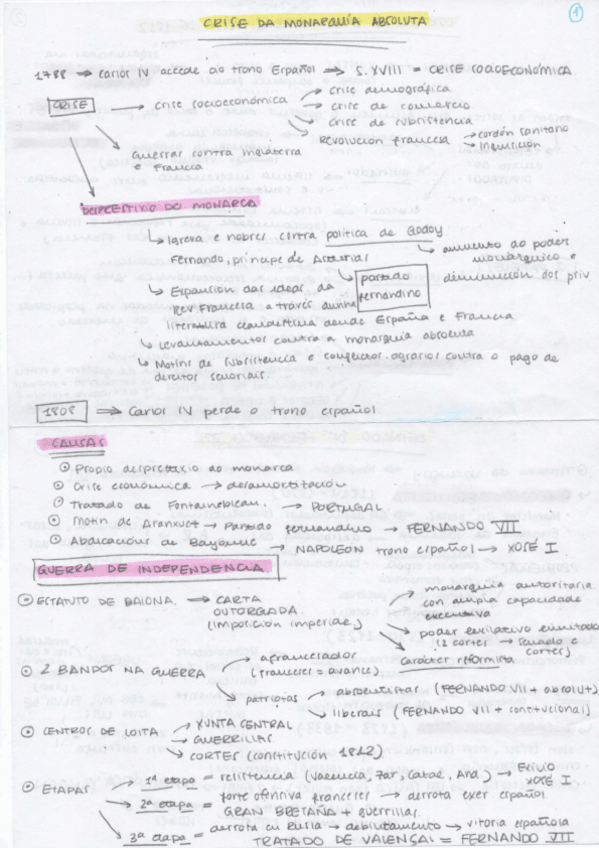 CRISE DA MONARQUÍA ABSOLUTA
1
1788 → Carlos IV accede ao trono Español → S. XVIII = CRISE SOCIOECONÓMICA
CRISE → crise socioeconómica → crise demográfica
→ crise de comercio
→ crise de subsistencia
Revolución francesa → cordón sanitario
→ Inquisición
Guerras contra Inglaterra
e Francia
DESPRESTIXIO DO MONARCA
↳ Igrexa e nobres contra política de Godoy
→ aumento do poder
monárquico e
diminución dos priv
Fernando, príncipe de Asturias
↳ partido
fernandino
↳ Expansión das ideas da
Rev Francesa a través dunha
literatura clandestina dende España e Francia
↳ levantamentos contra a monarquía absoluta
↳ Motíns de subsistencia e conflictos agrarios contra o pago de
dereitos señoriais.
1808 ⇒ Carlos IV perde o trono español
CAUSAS
Propio desprestixio do monarca
Crise económica → desamortización
Tratado de Fontainebleau. → PORTUGAL
Motín de Aranxuez → Partido fernandino → FERNANDO VII
Abdicacións de Bayona → NAPOLEÓN trono español → XOSÉ I
GUERRA DE INDEPENDENCIA
ESTATUTO DE BAIONA. → CARTA
OUTORGADA.
(imposición imperial)
→ monarquía autoritaria
con ampla capacidade
executiva
→ poder lexislativo limitado
(2 cortes → Senado e
cortes)
→ carácter reformista
2 BANDOS NA GUERRA → afrancesados
(franceses = avance)
→ patriotas → absolutistas (FERNANDO VII + absolut)
→ liberais (FERNANDO VII + constitucional)
CENTROS DE LOITA → XUNTA CENTRAL
→ GUERRILLAS
→ CORTES (constitución 1812)
ETAPAS → 1ª etapa = resistencia (Valencia, Zar, Catal, And) → EXILIO
XOSÉ I
→ 2ª etapa = forte ofensiva franceses → derrota exer español
GRAN BRETAÑA + guerrillas.
→ 3ª etapa = derrota en Rusia → debilitamento → vitoria española
TRATADO DE VALENÇAI = FERNANDO VII